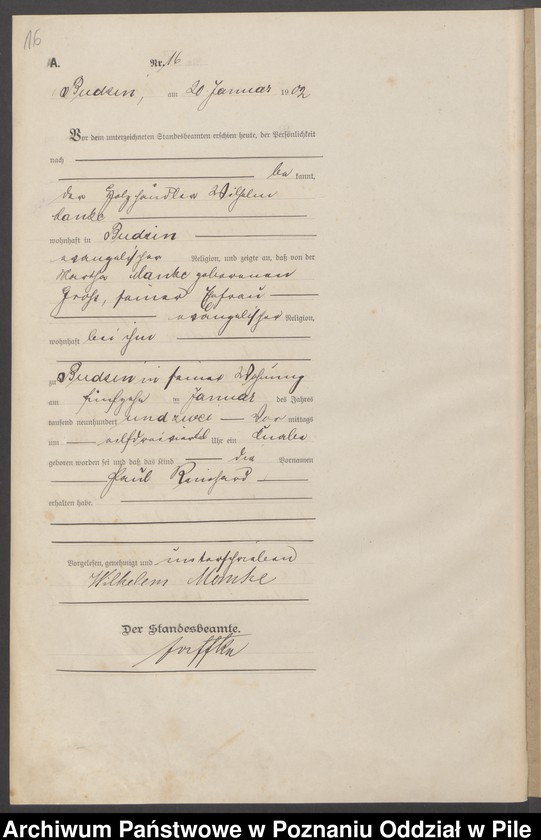 16
A. Nr. 16
Budsin, am 20 Januar 1902
Vor dem unterzeichneten Standesbeamten erschien heute, der Persönlichkeit
nach
be kannt,
der Holzhändler Wilhelm
Manke
wohnhaft in Budsin
evangelischer Religion, und zeigte an, daß von der
Martha Manke geborenen
Groß, seiner Ehefrau
evangelischer Religion,
wohnhaft bei ihm
zu Budsin in seiner Wohnung
am fünfzehn ten Januar des Jahres
tausend neunhundert und zwei Vor mittags
um Uhr ein Knabe
geboren worden sei und daß das Kind die Vornamen
Paul Reinhard
erhalten habe.
Vorgelesen, genehmigt und unterschrieben
Wilhelem Manke
Der Standesbeamte.
Archiwum Państwowe w Poznaniu Oddział w Pile